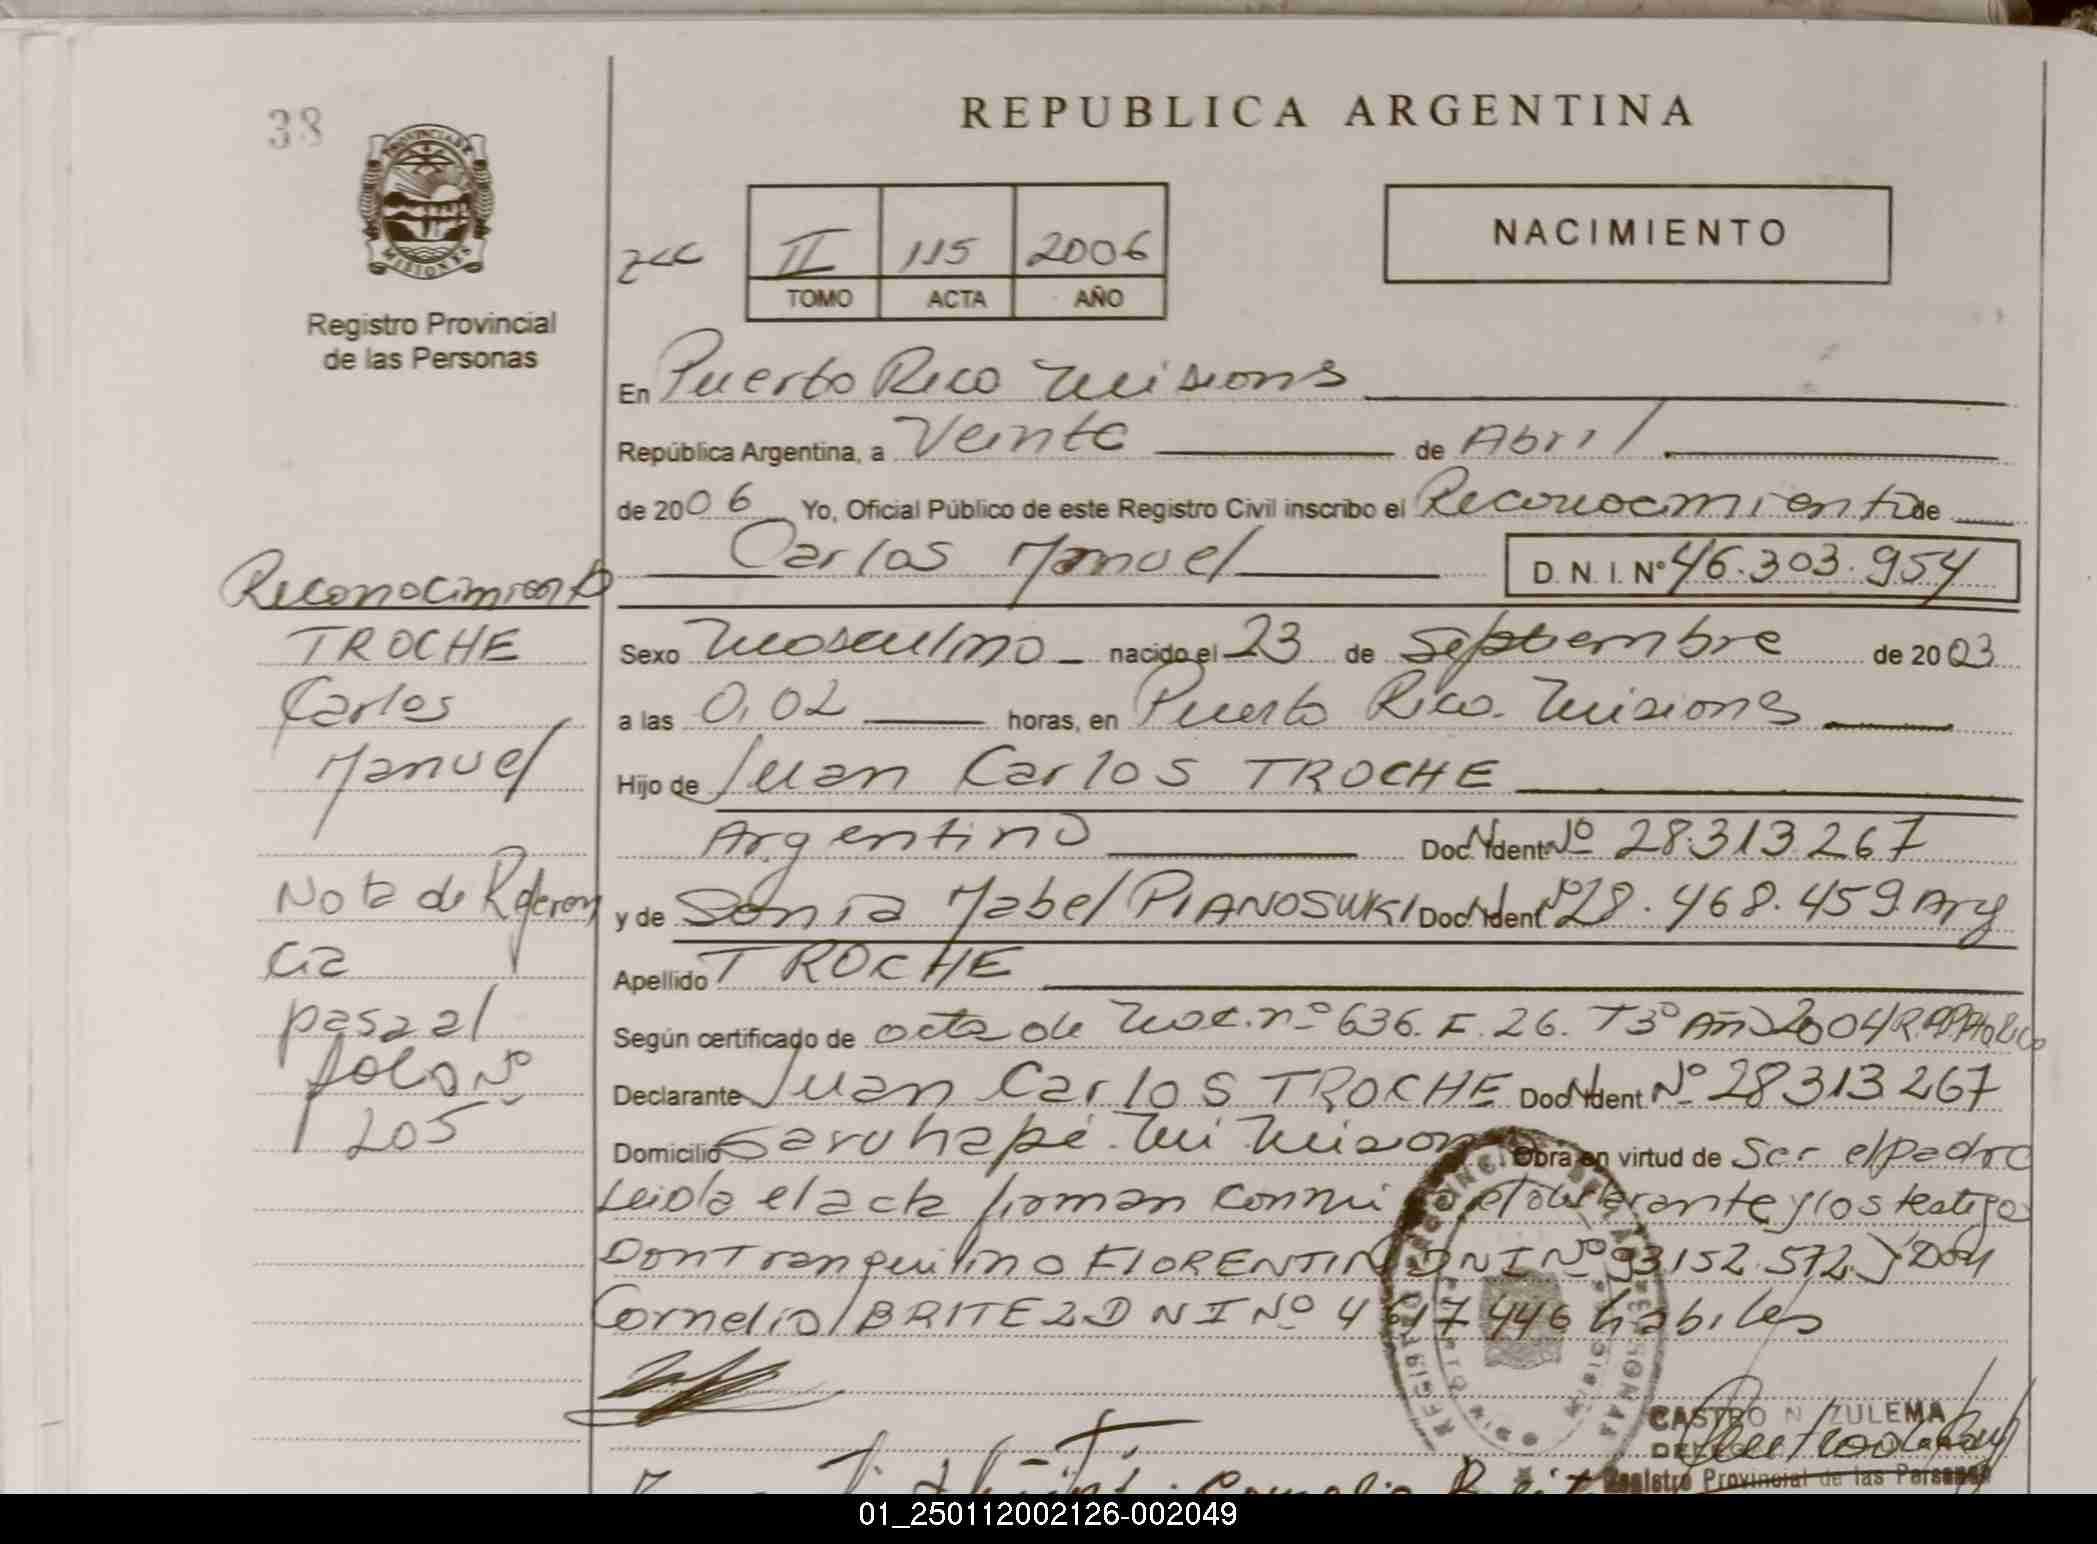 38
PROVINCIA DE
MISIONES
Registro Provincial
de las Personas
REPUBLICA ARGENTINA
II 115 2006
TOMO ACTA AÑO
NACIMIENTO
En Puerto Rico Misiones
República Argentina, a Veinte de Abril
de 2006 Yo, Oficial Público de este Registro Civil inscribo el Reconocimiento de
Carlos Manuel D. N. I. Nº 46.303.954
Sexo Masculino nacido el 23 de Septiembre de 2003
a las 0,02 horas, en Puerto Rico. Misiones
Hijo de Juan Carlos TROCHE
Argentino Doc. Ident Nº 28.313.267
y de Sonia Mabel PIANOSWKI Doc. Ident Nº 28.468.459 Arg
Apellido TROCHE
Según certificado de acta de Nac. nº 636. F. 26. T 3º Año 2004
Declarante Juan Carlos TROCHE Doc. Ident Nº 28313267
Domicilio Garuhapé. Mi Mision Obra en virtud de Ser el padre
Leida el acta firman conmi el declarante y los testigos
Don Tranquilino FLORENTIN DNI Nº 93152.572 y Don
Cornelio BRITEZ DNI Nº 4617446 habiles
Reconocimiento
TROCHE
Carlos
Manuel
Nota de Referen
cia
pasa al
folio Nº
205
CASTRO N. ZULEMA
Registro Provincial de las Personas
01_250112002126-002049